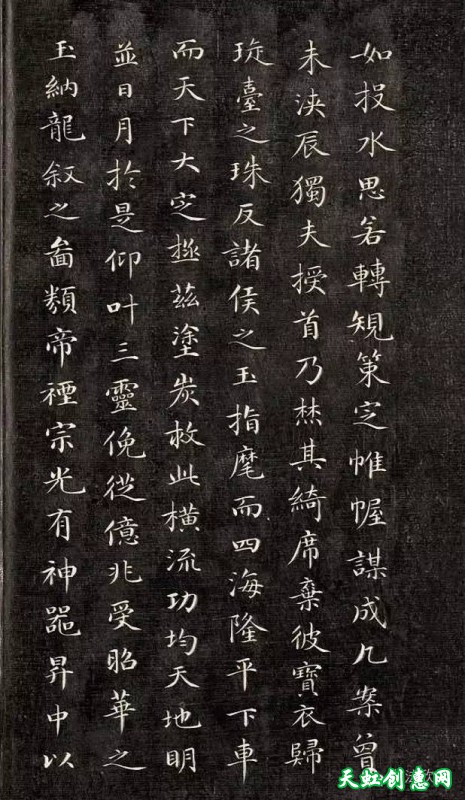 如投水思若轉規策定帷幄謀成几案曾
未浹辰獨夫授首乃焚其綺席棄彼寶衣歸
琁臺之珠反諸侯之玉指麾而四海隆平下車
而天下大定拯茲塗炭救此橫流功均天地明
並日月於是仰叶三靈俛從億兆受昭華之
玉納龍叙之啚類帝禋宗光有神器昇中以
天虹创意网